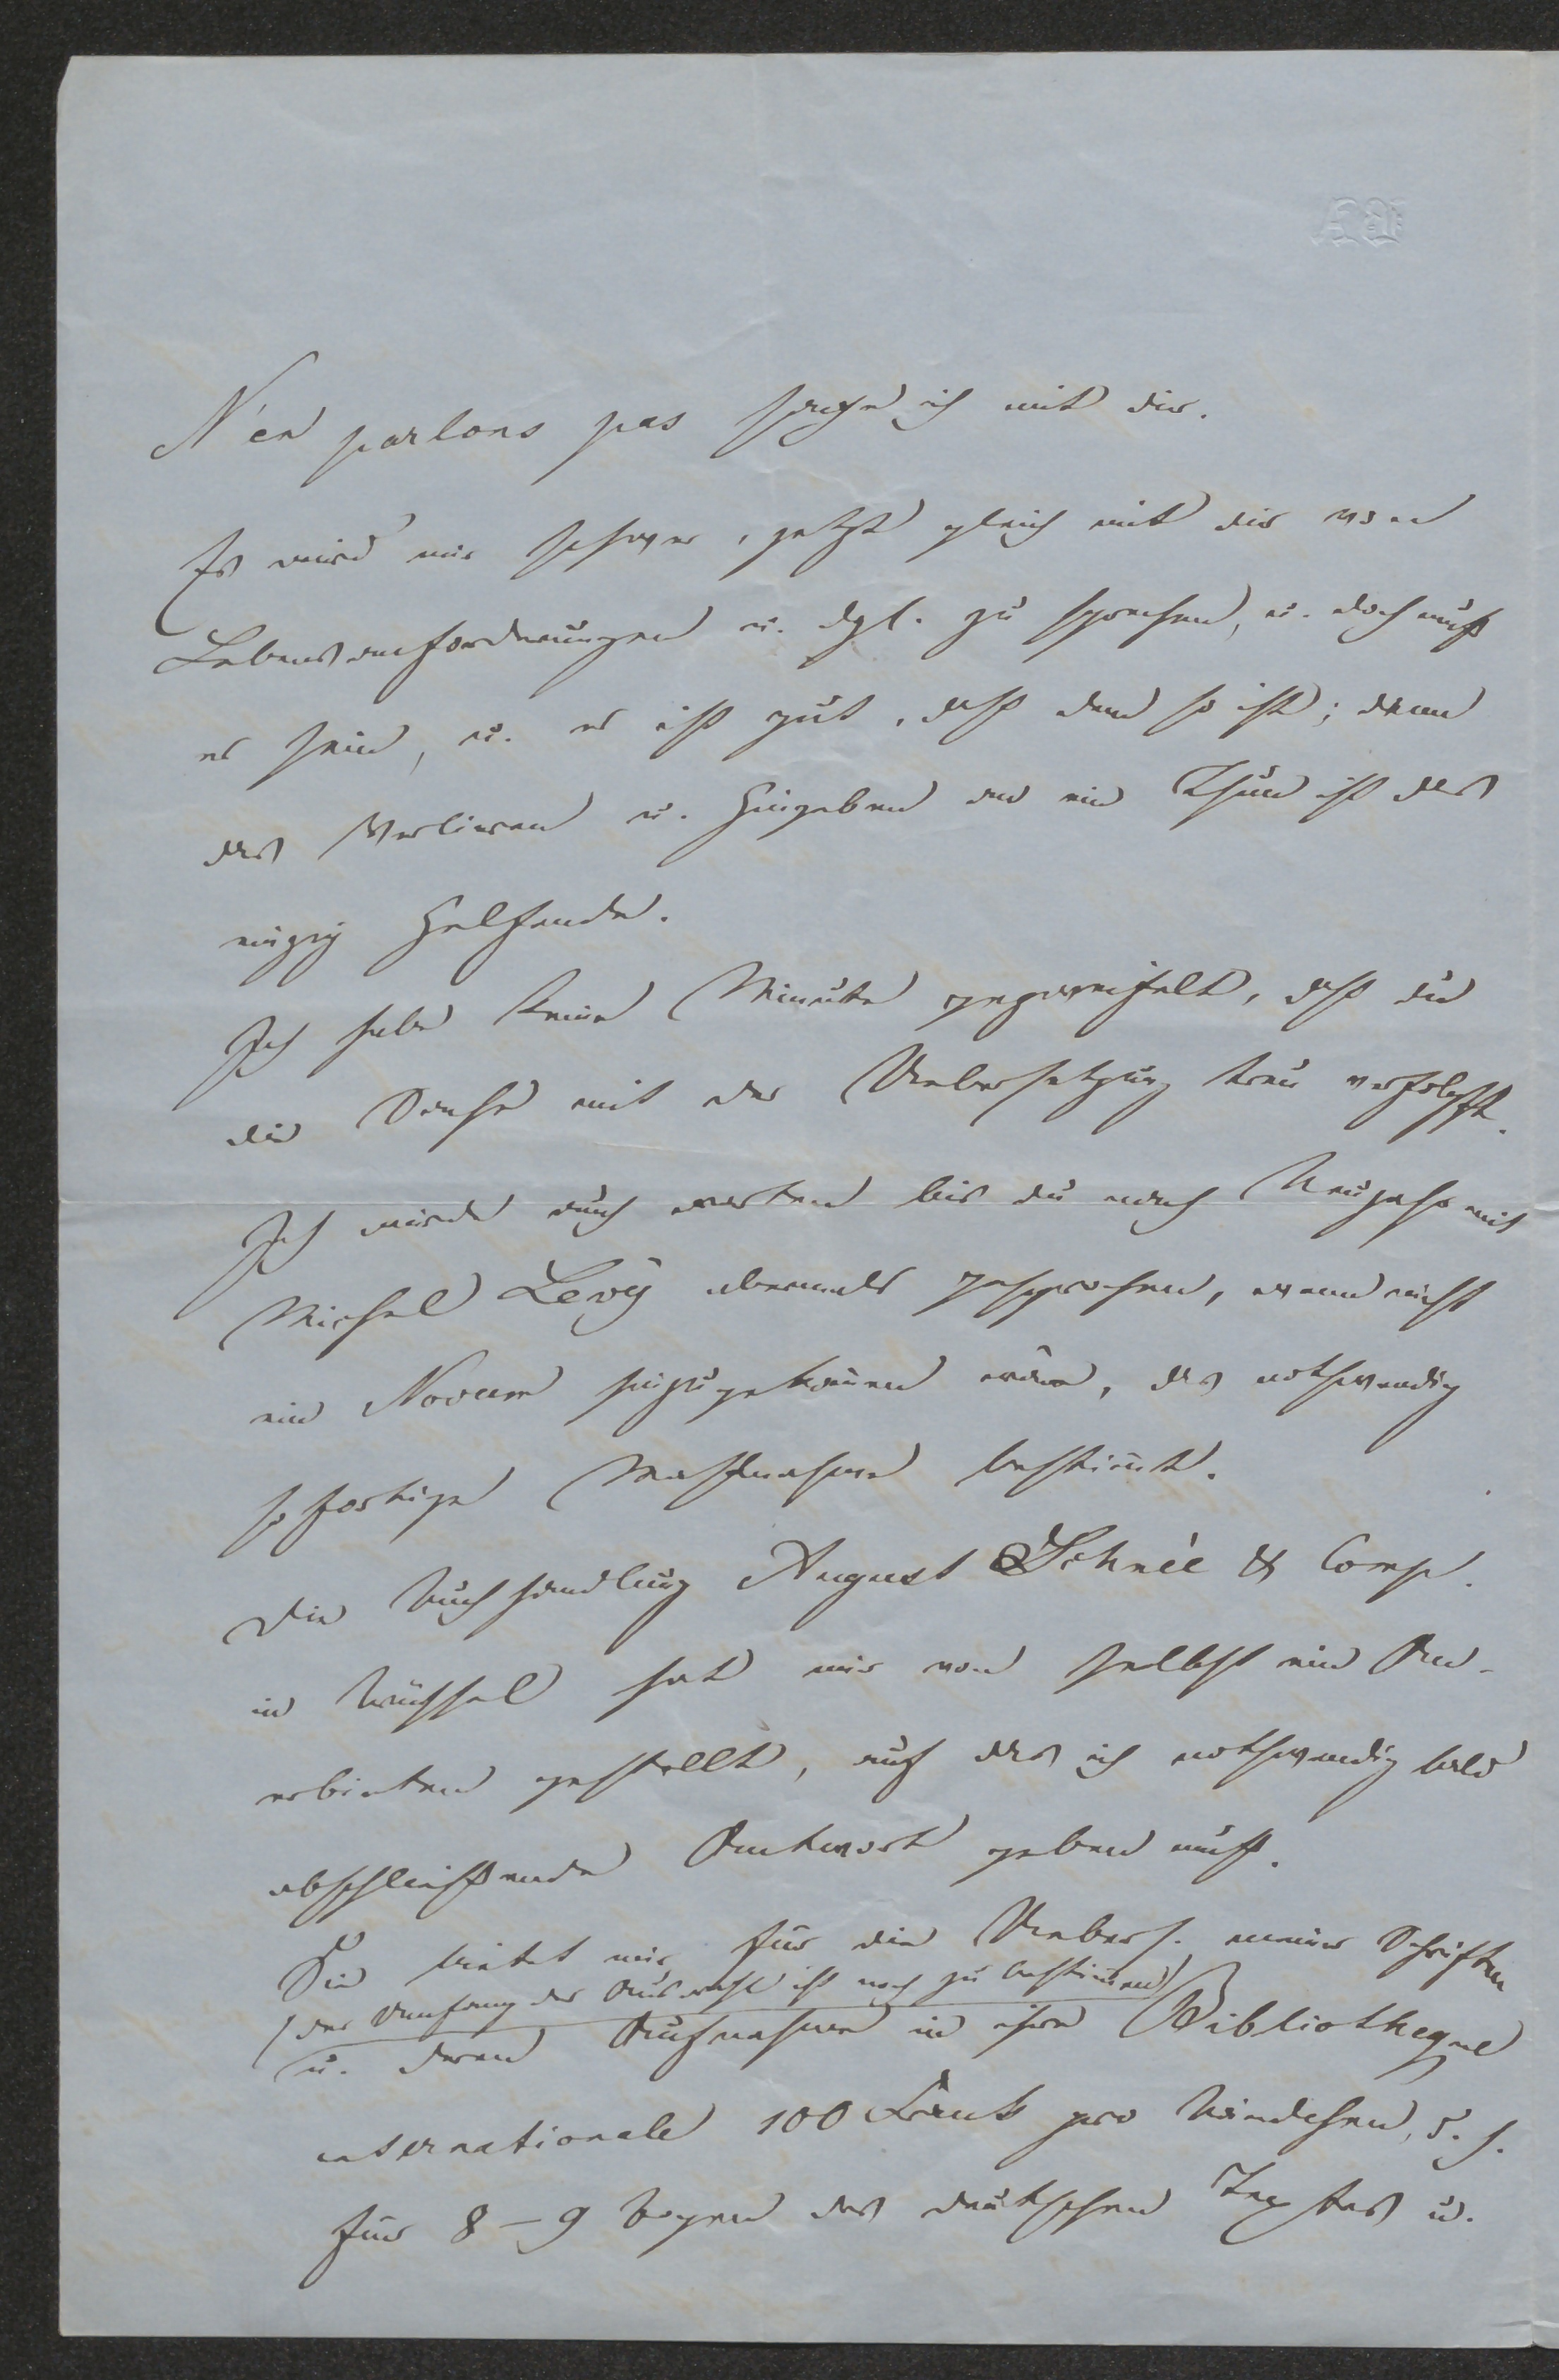 N'en parlons pas sage ich mit dir.
Es wird mir schwer, jetzt gleich mit dir von
Lebensanforderungen u. dgl. zu sprechen, u. doch muß
es sein, u. es ist gut, daß dem so ist; denn
das Verlieren u. Hingeben an ein Thun ist das
einzig Helfende.
Ich habe keine Minute gezweifelt, daß du
die Sache mit der Uebersetzung treu verfolgst.
Ich würde auch warten bis du nach Neujahr mit
Michel Levÿ abermals gesprochen, wenn nicht
ein Novum hinzugekom̄en wäre, das nothwendig
sofortige Maßnahme bestim̄t.
Die Buchhandlung August Schnée & Comp.
in Brüssel hat mir von selbst ein An-
erbieten gestellt, auf das ich nothwendig bald
abschließende Antwort geben muß.
Sie bietet mir für die Uebers. meiner Schriften
(der Umfang der Auswahl ist noch zu bestim̄en)
u. deren Aufnahme in ihre Bibliotheque
internationale 100 Frank pro Bändchen, d. h.
für 8–9 Bogen des deutschen Textes u.